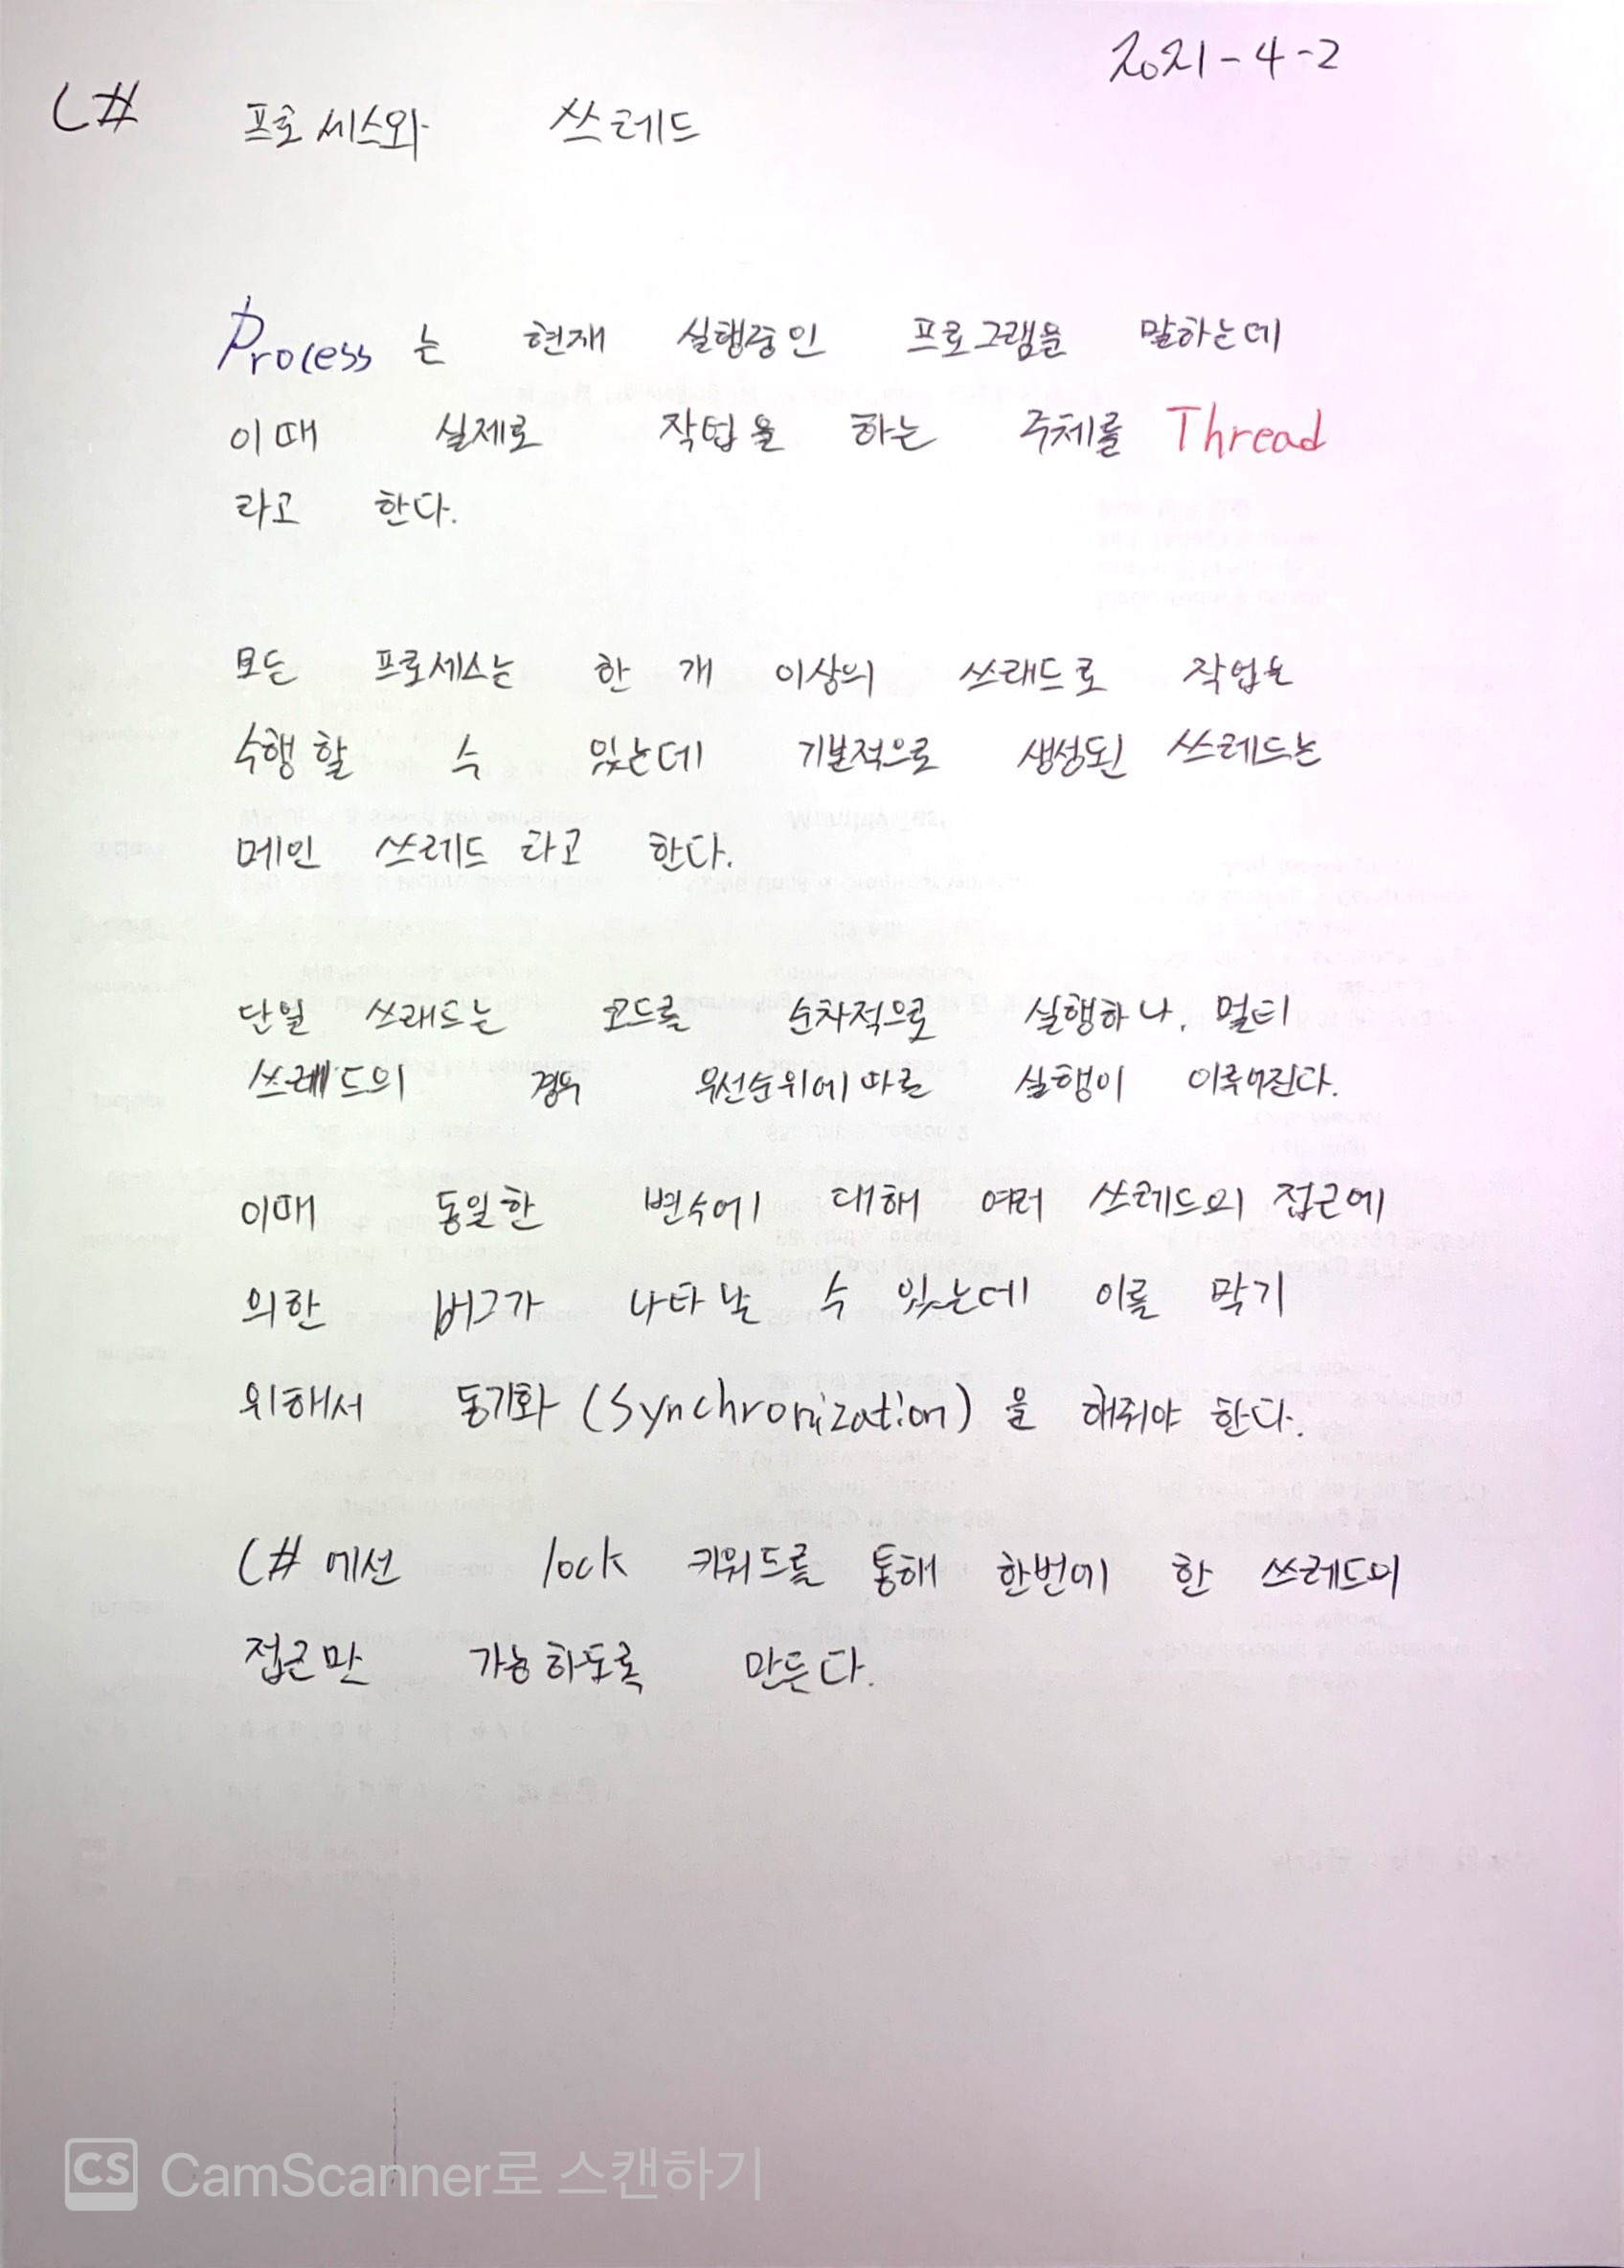 2021-4-2
C# 프로씨스와 쓰레드
Process 는 현재 실행중인 프로그램을 말하는데
이때 실제로 작업을 하는 주체를 Thread
라고 한다.
모든 프로세스는 한 개 이상의 쓰래드로 작업을
수행할 수 있는데 기본적으로 생성된 쓰레드는
메인 쓰레드 라고 한다.
단일 쓰래드는 코드를 순차적으로 실행하나, 멀티
쓰레드의 경우 우선순위에 따른 실행이 이루어진다.
이때 동일한 변수에 대해 여러 쓰레드의 접근에
의한 버그가 나타날 수 있는데 이를 막기
위해서 동기화 (Synchronization) 을 해줘야 한다.
C# 에선 lock 키워드를 통해 한번에 한 쓰레드의
접근만 가능하도록 만든다.
CS CamScanner로 스캔하기